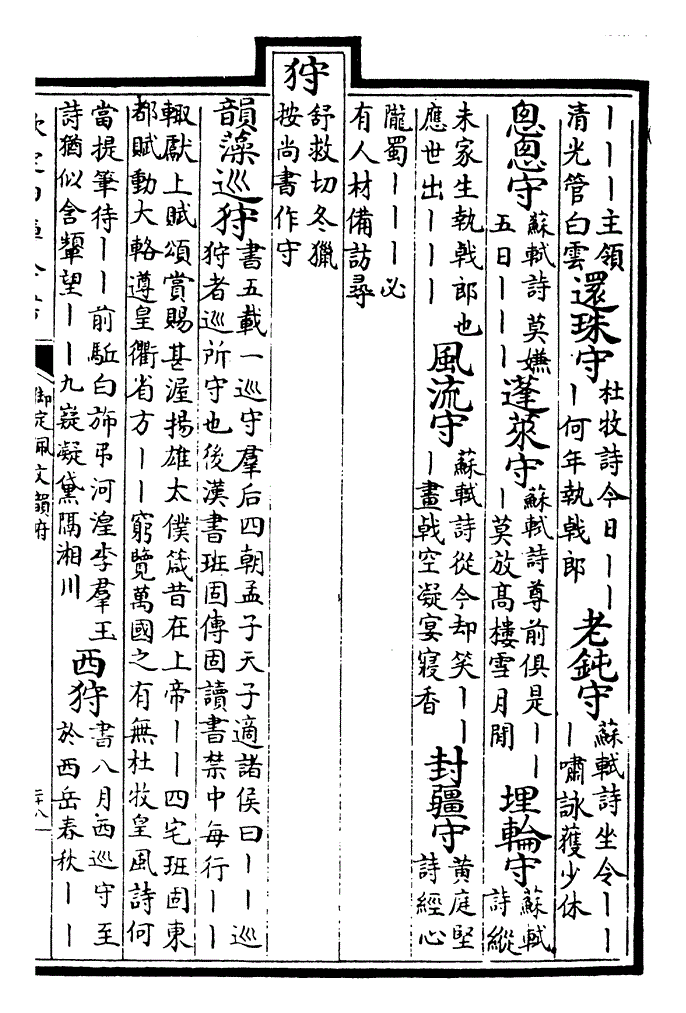 丨丨丨主領
清光管白雲
還珠守
杜牧詩今日丨丨
丨何年執戟郎
老鈍守
蘇軾詩坐令丨丨
丨嘯詠獲少休
怱怱守
蘇軾詩莫嫌
五日丨丨丨
蓬萊守
蘇軾詩尊前俱是丨丨
丨莫放髙樓雪月閒
埋輪守
蘇軾
詩縱
未家生執戟郎也
應世出丨丨丨
風流守
蘇軾詩從今却笑丨丨
丨畫戟空凝宴寢香
封疆守
黄庭堅
詩經心
隴蜀丨丨丨必
有人材備訪尋
狩
舒救切冬獵
按尚書作守
韻藻
巡狩
書五載一巡守羣后四朝孟子天子適諸侯曰丨丨巡
狩者巡所守也後漢書班固傳固讀書禁中每行丨丨
輒獻上賦頌賞賜甚渥揚雄太僕箴昔在上帝丨丨四宅班固東
都賦動大輅遵皇衢省方丨丨窮覽萬國之有無杜牧皇風詩何
當提筆待丨丨前駈白斾弔河湟李羣玉
詩猶似含顰望丨丨九嶷凝黛隔湘川
西狩
書八月西巡守至
於西岳春秋丨丨
御定佩文韻府
二十八